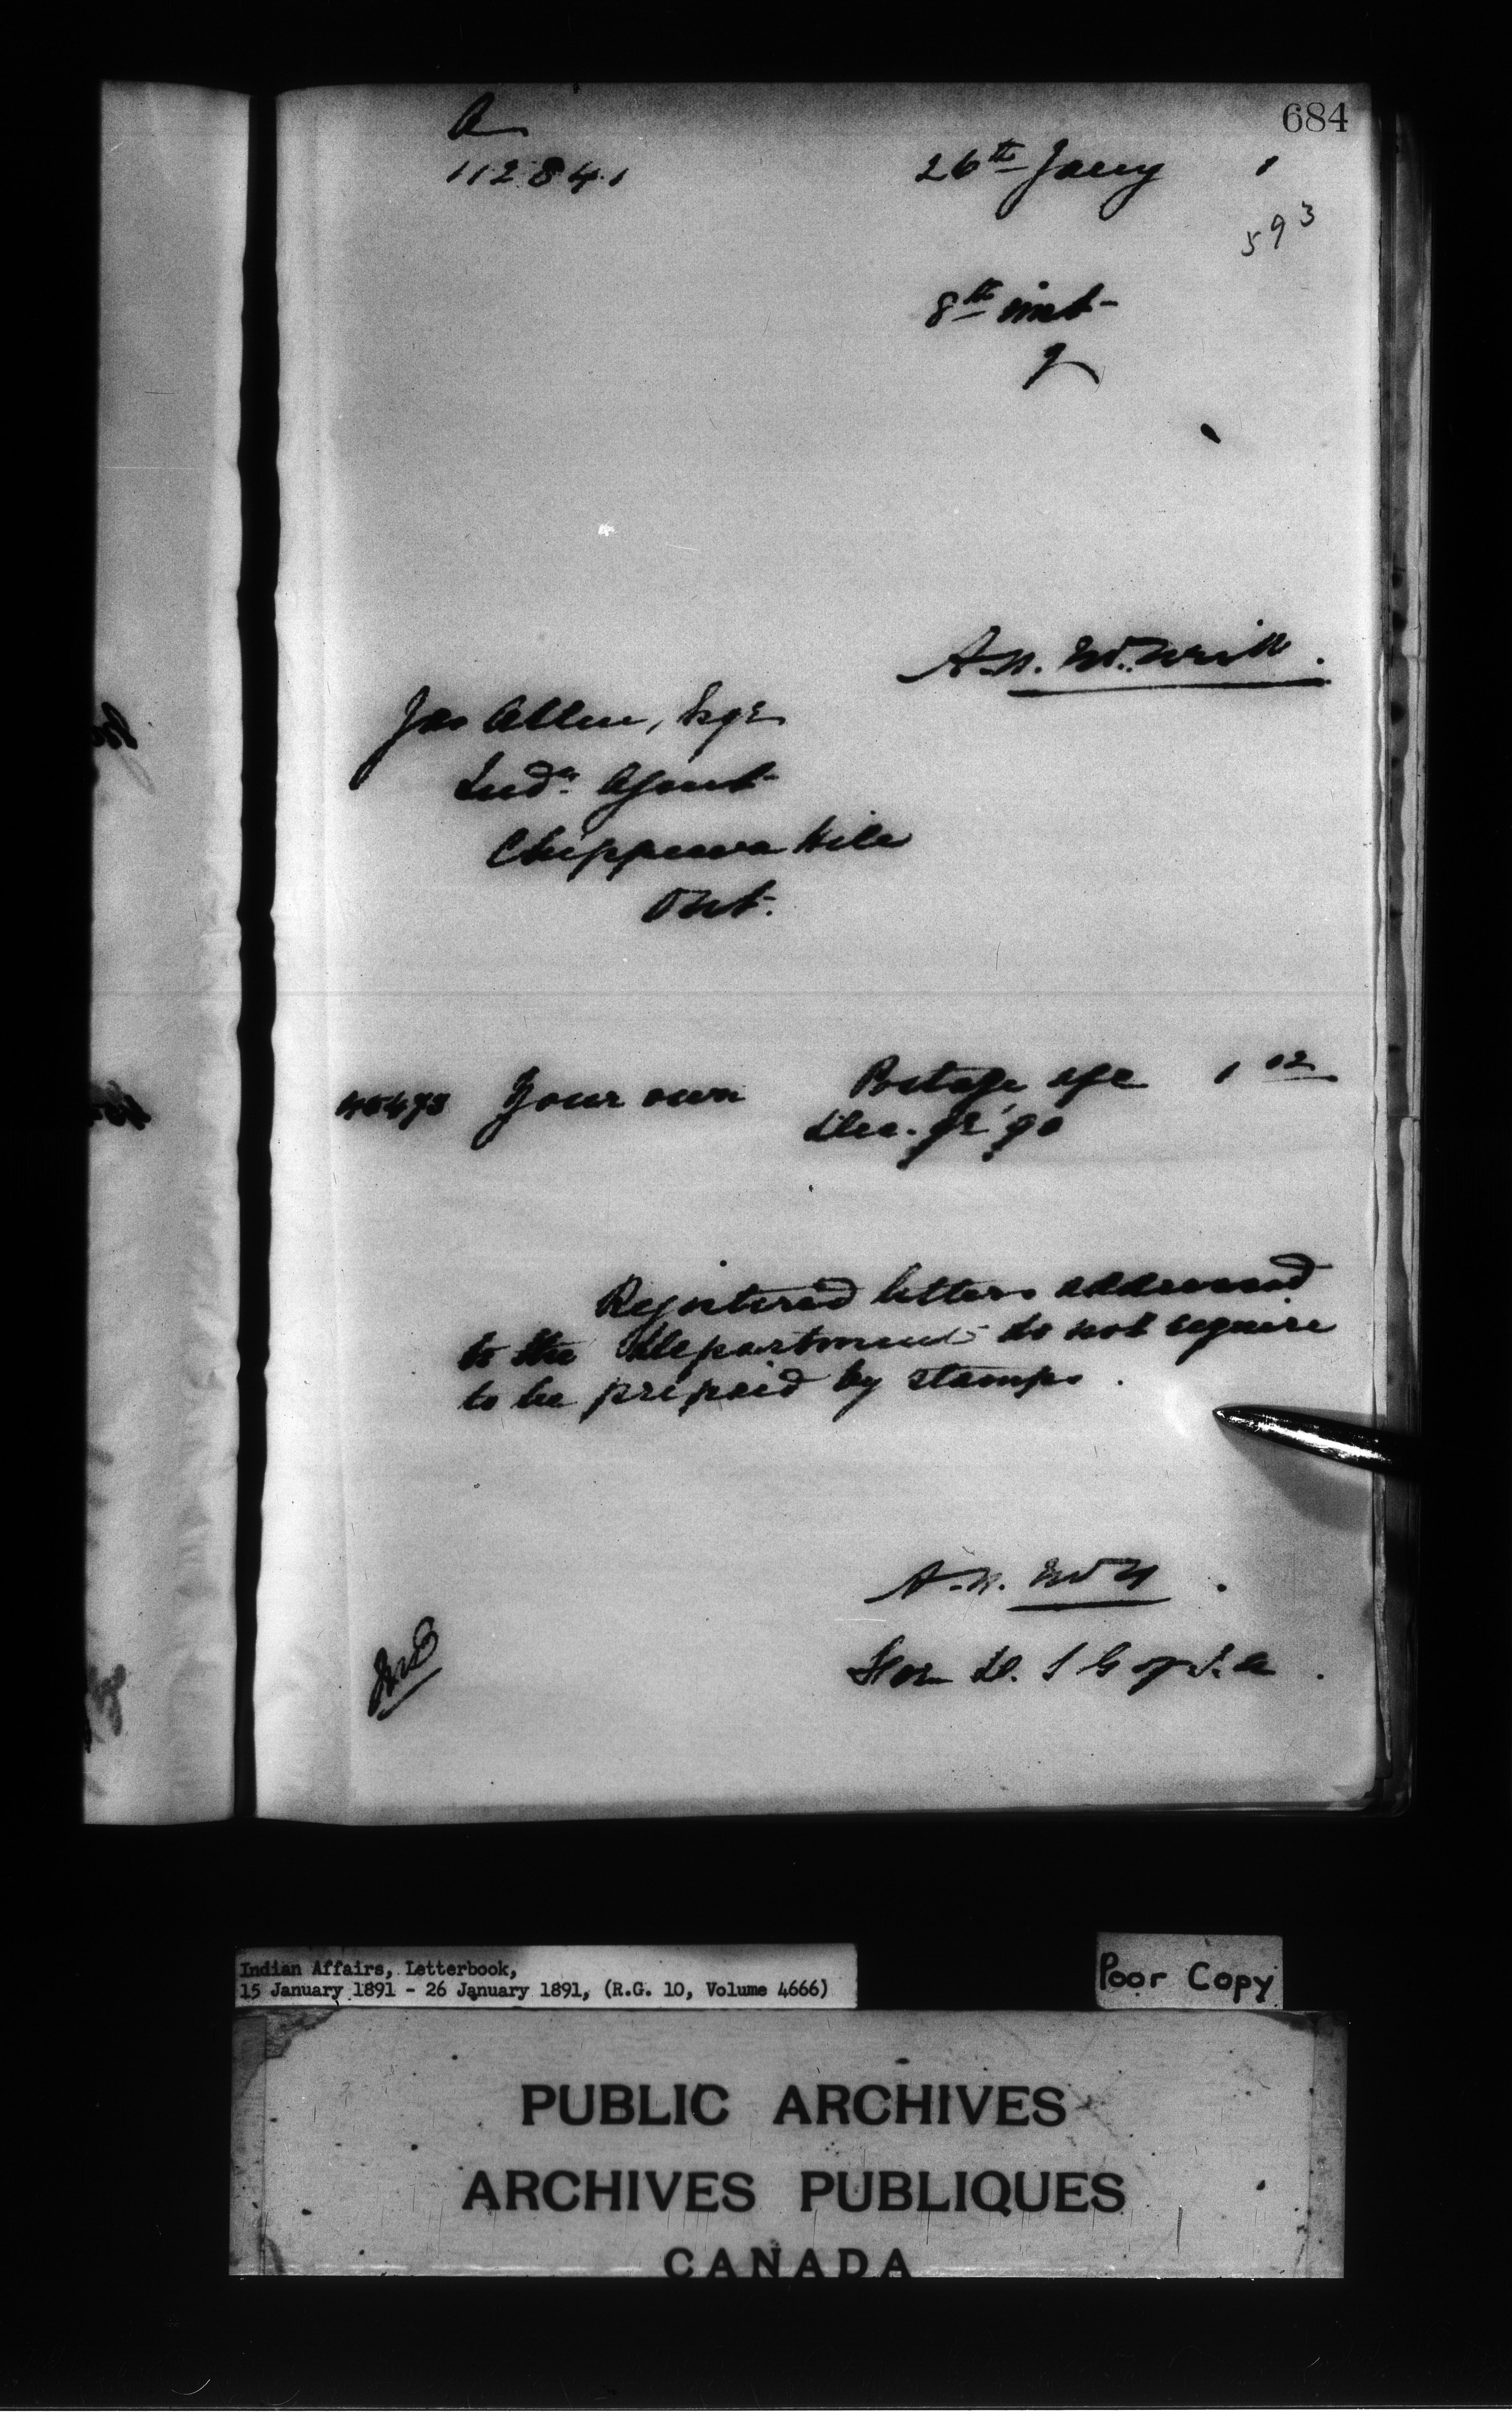 684
A
112841
26th Jany 1
593
8th inst
A. N. McNeill.
Jas Allen, Esqr
Indn. Agent
Chippewa Hill
Ont.
Your own Postage a/c 1 02
Dec. qr '90
Registered letters addressed
to the Department do not require
to be prepaid by stamps.
A. N. McN
For D. S. G. of I. A.
Indian Affairs, Letterbook,
15 January 1891 - 26 January 1891, (R.G. 10, Volume 4666)
Poor Copy
PUBLIC ARCHIVES
ARCHIVES PUBLIQUES
CANADA